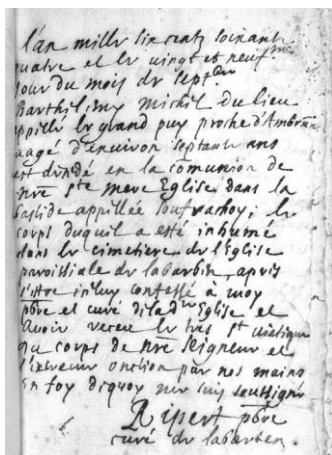 l'an mille six centz soixante
quatre et le vingt et neuf.me
jour du mois de sept.bre
Barthelemy Michel du lieu
appellé le grand puy proche d'Ambrun
aagé d'environ septante ans
est décédé en la comunion de
nre ste mere Eglise dans la
bastide appillée ; le
corps duquel a esté inhumé
dans le cimetiere de l'Eglise
paroissiale de labarben, apres
s'estre iceluy confessé à moy
pbre et curé de lad. Eglise et
avoir receu le tres st viatique
du corps de nre seigneur et
l'extreme onction par nos mains
En foy dequoy me suis soussigné
Ripert pbre
curé de labarben.